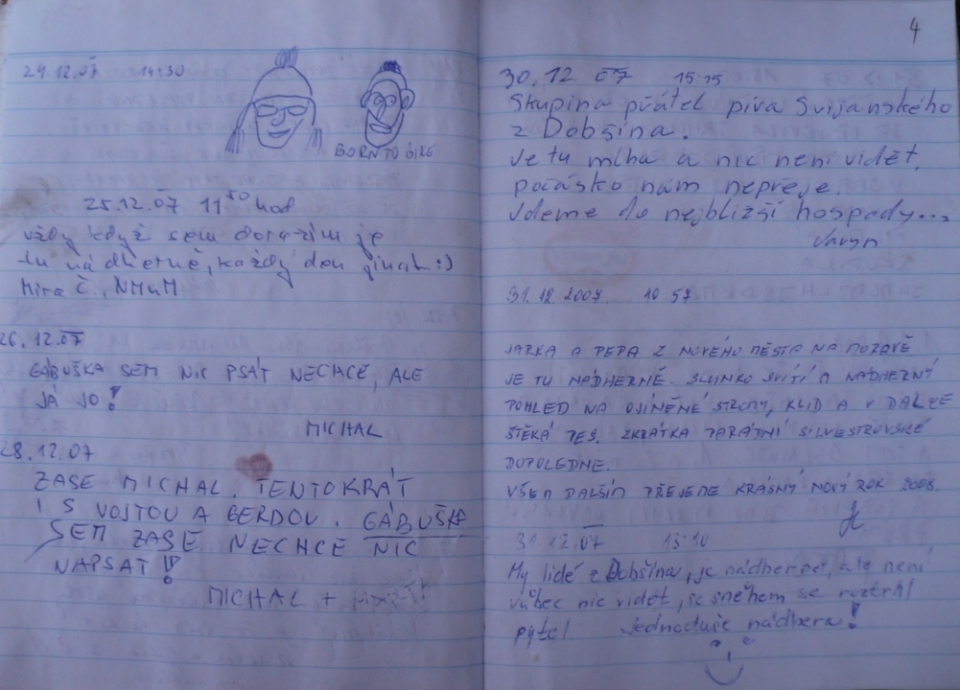 24.12.07 14:30
BORN TO BIKE
25.12.07 11 50 hod
vždy když sem dorazím je
tu nádherně, každý den jinak :)
Mira Č, NMnM
26.12.07
GÁBUŠKA SEM NIC PSÁT NECHCE, ALE
JÁ JO!
MICHAL
28.12.07
ZASE MICHAL. TENTOKRÁT
I S VOJTOU A GERDOU. GÁBUŠKA
SEM ZASE NECHCE NIC
NAPSAT!
MICHAL +
4
30.12 07 15:15
Skupina přátel piva Svijanského
z Dobšína.
Je tu mlha a nic není vidět.
počásko nám nepřeje.
Jdeme do nejbližší hospody...
31.12.2007 10:57
JARKA A PEPA Z NOVÉHO MĚSTA NA MORAVĚ
JE TU NÁDHERNĚ. SLUNKO SVÍTÍ A NÁDHERNÝ
POHLED NA OJÍNĚNÉ STROMY, KLID A V DÁLCE
ŠTĚKÁ PES. ZKRÁTKA PARÁDNÍ SILVESTROVSKÉ
DOPOLEDNE.
VŠEM DALŠÍM PŘEJEME KRÁSNÝ NOVÝ ROK 2008.
31.12.07 13:10
My lidé z Dobšína, je nádherně, ale není
vůbec nic vidět, se sněhem se roztrhl
pytel Jednoduše nádhera!